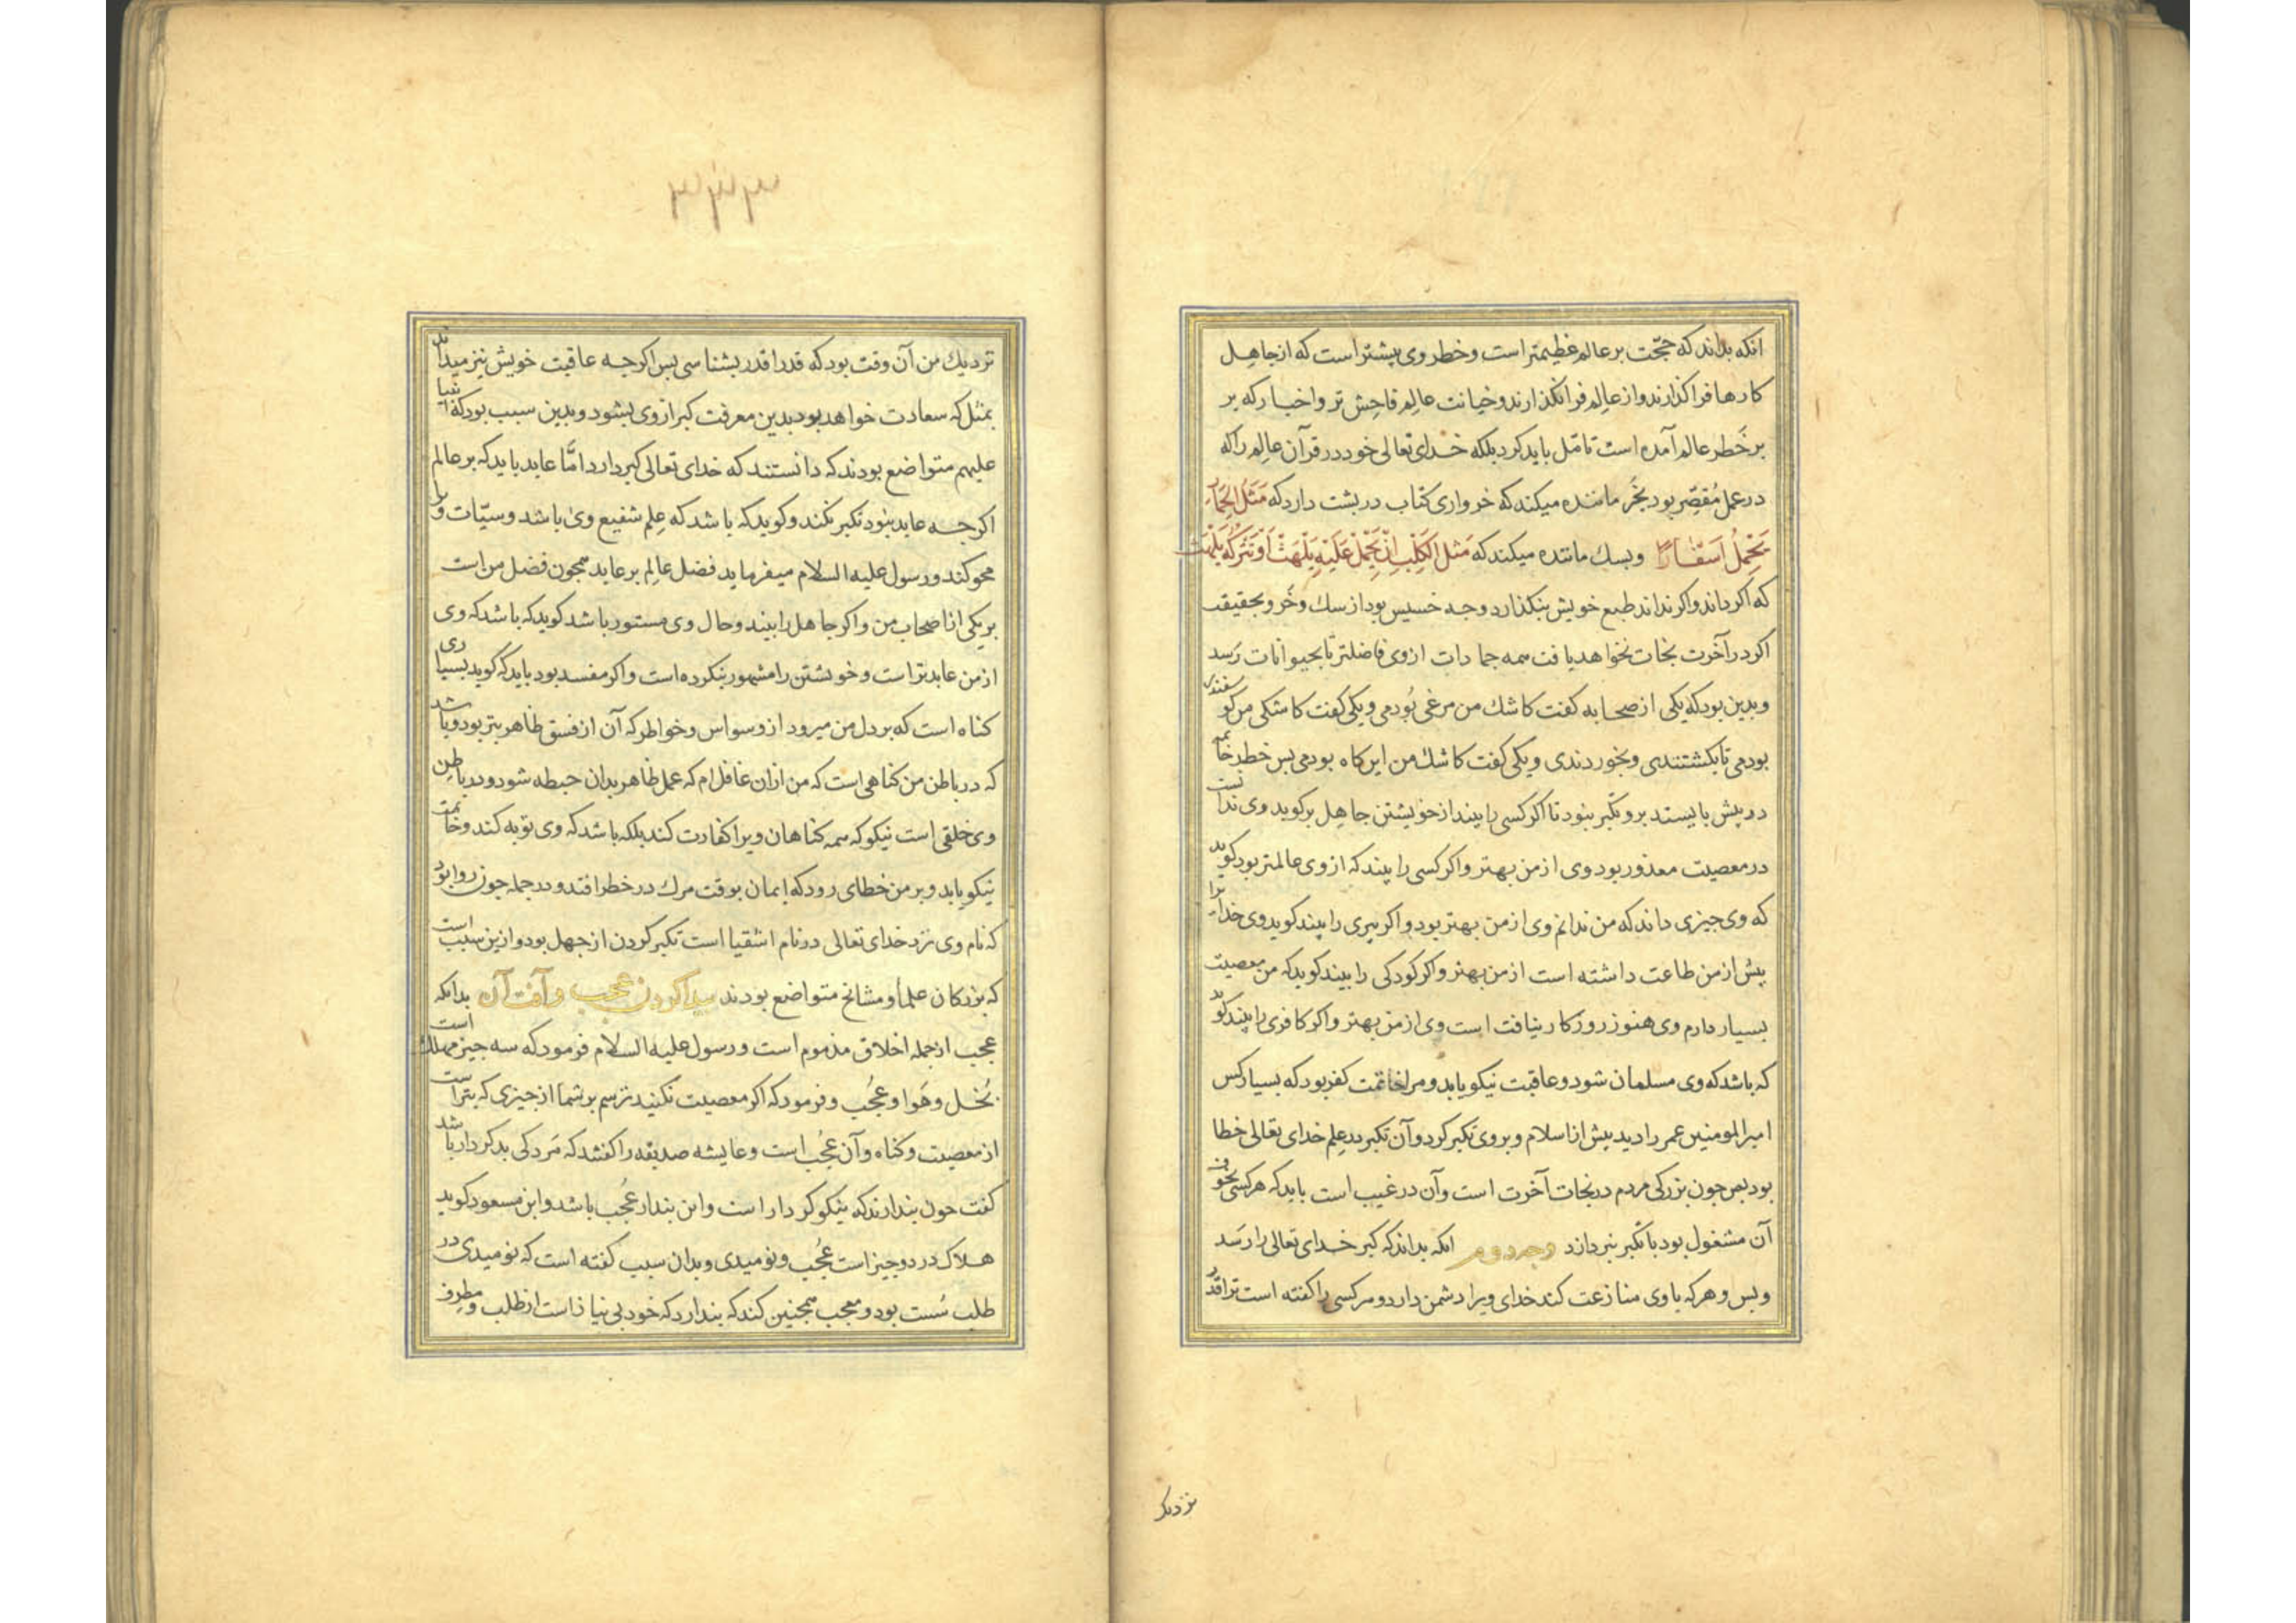 انکه بداند که حجّت بر عالم عظیمتر است و خطر وی بیشتر است که از جاهِل
کارها فرا کذارند و از عالِم فرا نکذارند و خیانت عالِم فاحِش تر و اخبار که بر
بر خَطر عالم آمده است تامّل باید کرد بلکه خدای تعالی خود در قرآن عالِم را که
در عمل مُقصِّر بود بخَر ماننده میکند که خرواری کتاب در بشت دارد که مَثَلُ الحِمَارِ
یَحْمِلُ اَسْفَارًا وبسك ماننده میکند که مَثَل الکَلْبِ اِنْ تَحْمِلْ عَلَیْهِ یَلْهَثْ اَوْ تَتْرُکْهُ یَلْهَثْ
که اکر داند و اکر نداند طبع خویش بنکذارد و جه خسیس بود از سك و خر و بحقیقت
اکر در آخرت نجات نخواهد یافت همه جمادات ازوی فاضلتر تا بحیوانات رَسد
و بدین بود که یکی از صحابه کفت کاشك من مرغی بُودمی و یکی کفت کاشکی من کوسفندی
بودمی تا بکشتندی و بخوردندی و یکی کفت کاشك من این کاه بودمی بس خطر خاتمه
در پیش بایستد برو تکبّر بنود تا اکر کسی را بیند از خویشتن جاهِل بر کوید وی ندانست
در معصیت معذور بود وی از من بهتر و اکر کسی را بیند که از وی عالمتر بود کوید
که وی جیزی داند که من ندانم وی از من بهتر بود و اکر پیری را بیند کوید وی خدایرا
بیش از من طاعت داشته است از من بهتر و اکر کودکی را بیند کوید که من معصیت
بسیار دارم وی هنوز روزکار نیافت است وی از من بهتر و اکر کافری را بیند کوید
که باشد که وی مسلمان شود و عاقبت نیکو یابد و مرا خاتمت کفر بود که بسیار کس
امیر المومنین عمر را دید بیش از اسلام و بر وی تکبر کرد و آن تکبر در علم خدای تعالی خطا
بود بس جون بزرکی مردم در نجات آخرت است و آن در غیب است باید که هر کسی بخوف
آن مشغول بود با تکبر نبردازد وجه دوم انکه بداند که کبر خدای تعالی را رسَد
و بس و هر که با وی منازعت کند خدای ویرا دشمن دارد و مر کسی را کفته است ترا قدر
نزدیک
۳۳۳
نزدیك من آن وقت بود که قدر را قدر بشناسی بس اکرجه عاقبت خویش نیز میداند
بمثل که سعادت خواهد بود بدین معرفت کبر از وی بشود و بدین سبب بود که انبیا
علیهم متواضع بودند که دانستند که خدای تعالی کبر دارد امّا عابد باید که بر عالم
اکرجه عابد نبود تکبر نکند و کوید که باشد که عِلم شفیع وی باشد و سیّات ویرا
محو کند و رسول علیه السلام میفرماید فضل عالِم بر عابد همجون فضل من است
بر یکی از اصحاب من و اکر جاهل را بیند و حال وی مستور باشد کوید که باشد که وی
از من عابدتر است و خویشتن را مشهور نکرده است و اکر مفسد بود باید که کوید بسیاری
کناه است که بر دل من میرود از وسواس و خواطر که آن از فسق ظاهر بتر بود و باشد
که در باطن من کناهی است که من ازان غافل ام که عمل ظاهر بدان حبطه شود و در باطن
وی خلقی است نیکو که همه کناهان ویرا کفارت کند بلکه باشد که وی توبه کند و خاتمت
نیکو یابد و بر من خطای رود که ایمان بوقت مرك در خطر افتد و در جمله جون روا بود
که نام وی نزد خدای تعالی در نام اشقیا است تکبر کردن از جهل بود و ازین سبب است
که بزرکان علما و مشایخ متواضع بودند بیدا کردن عجب و آفت آن بدانکه
عجب از جمله اخلاق مذموم است و رسول علیه السلام فرمود که سه جیز مهلك است
بُخل و هَوا و عُجُب و فرمود که اکر معصیت نکنید ترسم بر شما از جیزی که بتر است
از معصیت و کناه و آن عُجُب است و عایشه صدیقه را کفتند که مَرد کی بد کردار باشد
کفت جون بندارند که نیکو کردار است و این بندار عُجُب باشد و ابن مسعود کوید
هلاک در دو جیز است عُجُب و نومیدی و بدان سبب کفته است که نومیدی در
طلب سُست بود و معجب همجنین کند که بندارد که خود بی نیاز است از طلب و مطرف